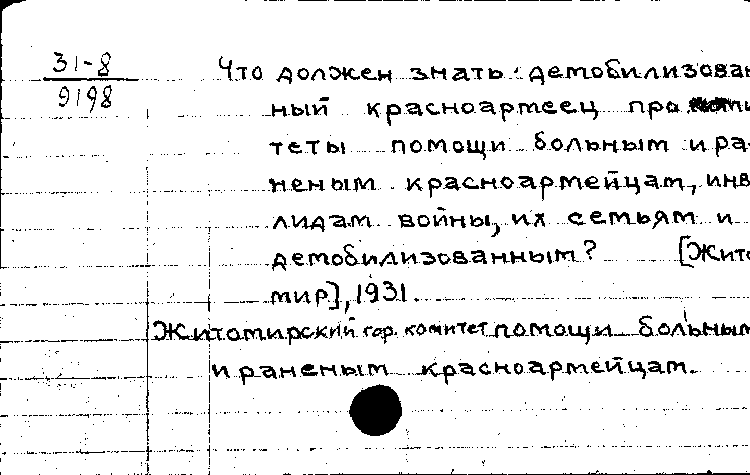 31-8
9198
Что должен знать демобилизован
ный красноармеец про коми
теты помощи больным и ра
неным красноармейцам, инва
лидам войны, их семьям и
демобилизованным? [Жито
мир], 1931.
Житомирский гор. комитет помощи больным
и раненым красноармейцам.